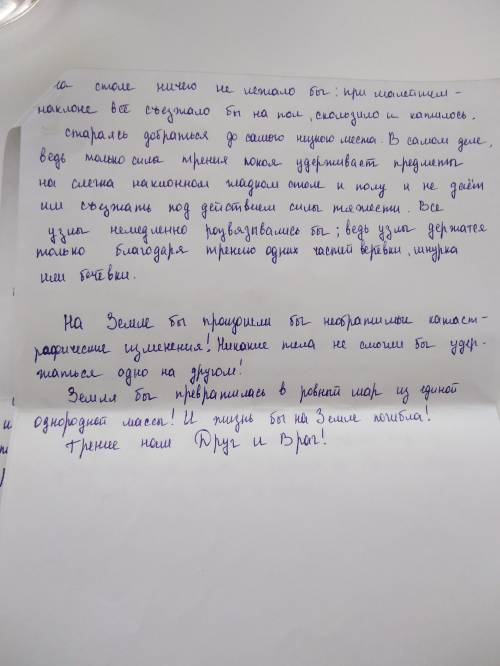 на столе ничего не лежало бы: при малейшем-
наклоне всё съезжало бы на пол, скользило и катилось.
стараясь добраться до самого низкого места. В самом деле,
ведь только сила трения покоя удерживает предметы
на слегка наклонном гладком столе и полу и не даёт
им съезжать под действием силы тяжести. Все
узлы немедленно розвязывались бы; ведь узлы держатся
только благодаря трению одних частей верёвки, шнурка
или бечевки.
На Земле бы произошли бы необратимые катаст-
рафические изменения! Никакие тела не смогли бы удер-
жаться одно на другом!
Земля бы превратилась в ровный шар из единой
однородной массы! И жизнь бы на Земле погибла!
Трение нам Друг и Враг!